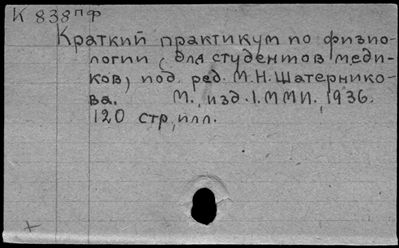 К 838пф
Краткий практикум по физио-
логии (для студентов меди-
ков) под. ред. М.Н. Шатернико-
ва. М., изд. 1.ММИ. 1936.
120 стр, илл.